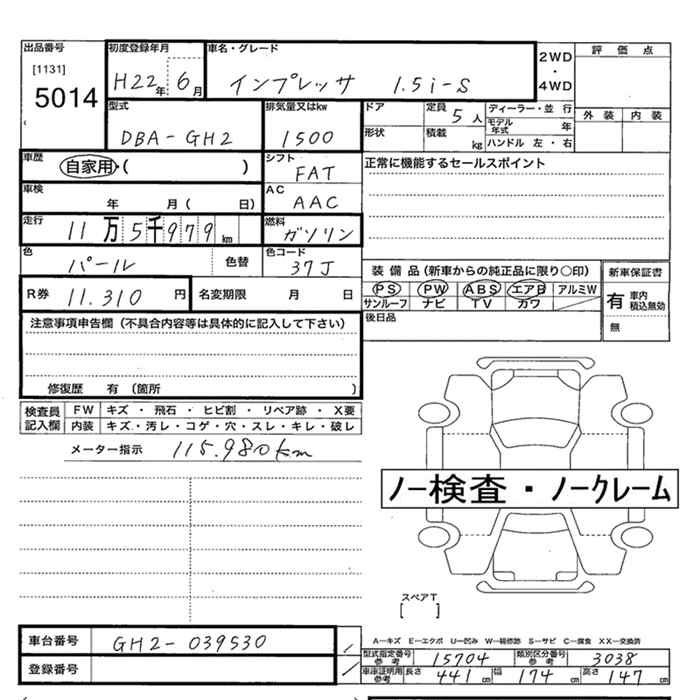 出品番号
[1131]
5014
初度登録年月
H22年 6月
車名・グレード
インプレッサ 1.5i-S
2WD
・
4WD
評価点
外装 内装
型式
DBA-GH2
排気量又はkw
1500
ドア
定員 5人
形状
積載 kg
ディーラー・並行
モデル年式 年
ハンドル 左・右
車歴
自家用・( )
シフト
FAT
正常に機能するセールスポイント
車検
年 月( 日)
AC
AAC
走行
11万5千979km
燃料
ガソリン
色
パール
色替
色コード
37J
装備品(新車からの純正品に限り○印)
PS PW ABS エアB アルミW
サンルーフ ナビ TV カワ
新車保証書
有 車内積込無効
無
R券 11.310 円
名変期限 月 日
後日品
注意事項申告欄(不具合内容等は具体的に記入して下さい)
修復歴 有 (箇所 )
検査員記入欄
FW キズ・飛石・ヒビ割・リペア跡・X要
内装 キズ・汚レ・コゲ・穴・スレ・キレ・破レ
メーター指示 115.980km
ノー検査・ノークレーム
スペアT
[ ]
車台番号 GH2-039530
登録番号
A−キズ E−エクボ U−凹み W−補修跡 S−サビ C−腐食 XX−交換済
型式指定番号 参考 15704 類別区分番号 参考 3038
車庫証明用 参考 長さ 441cm 幅 174cm 高さ 147cm